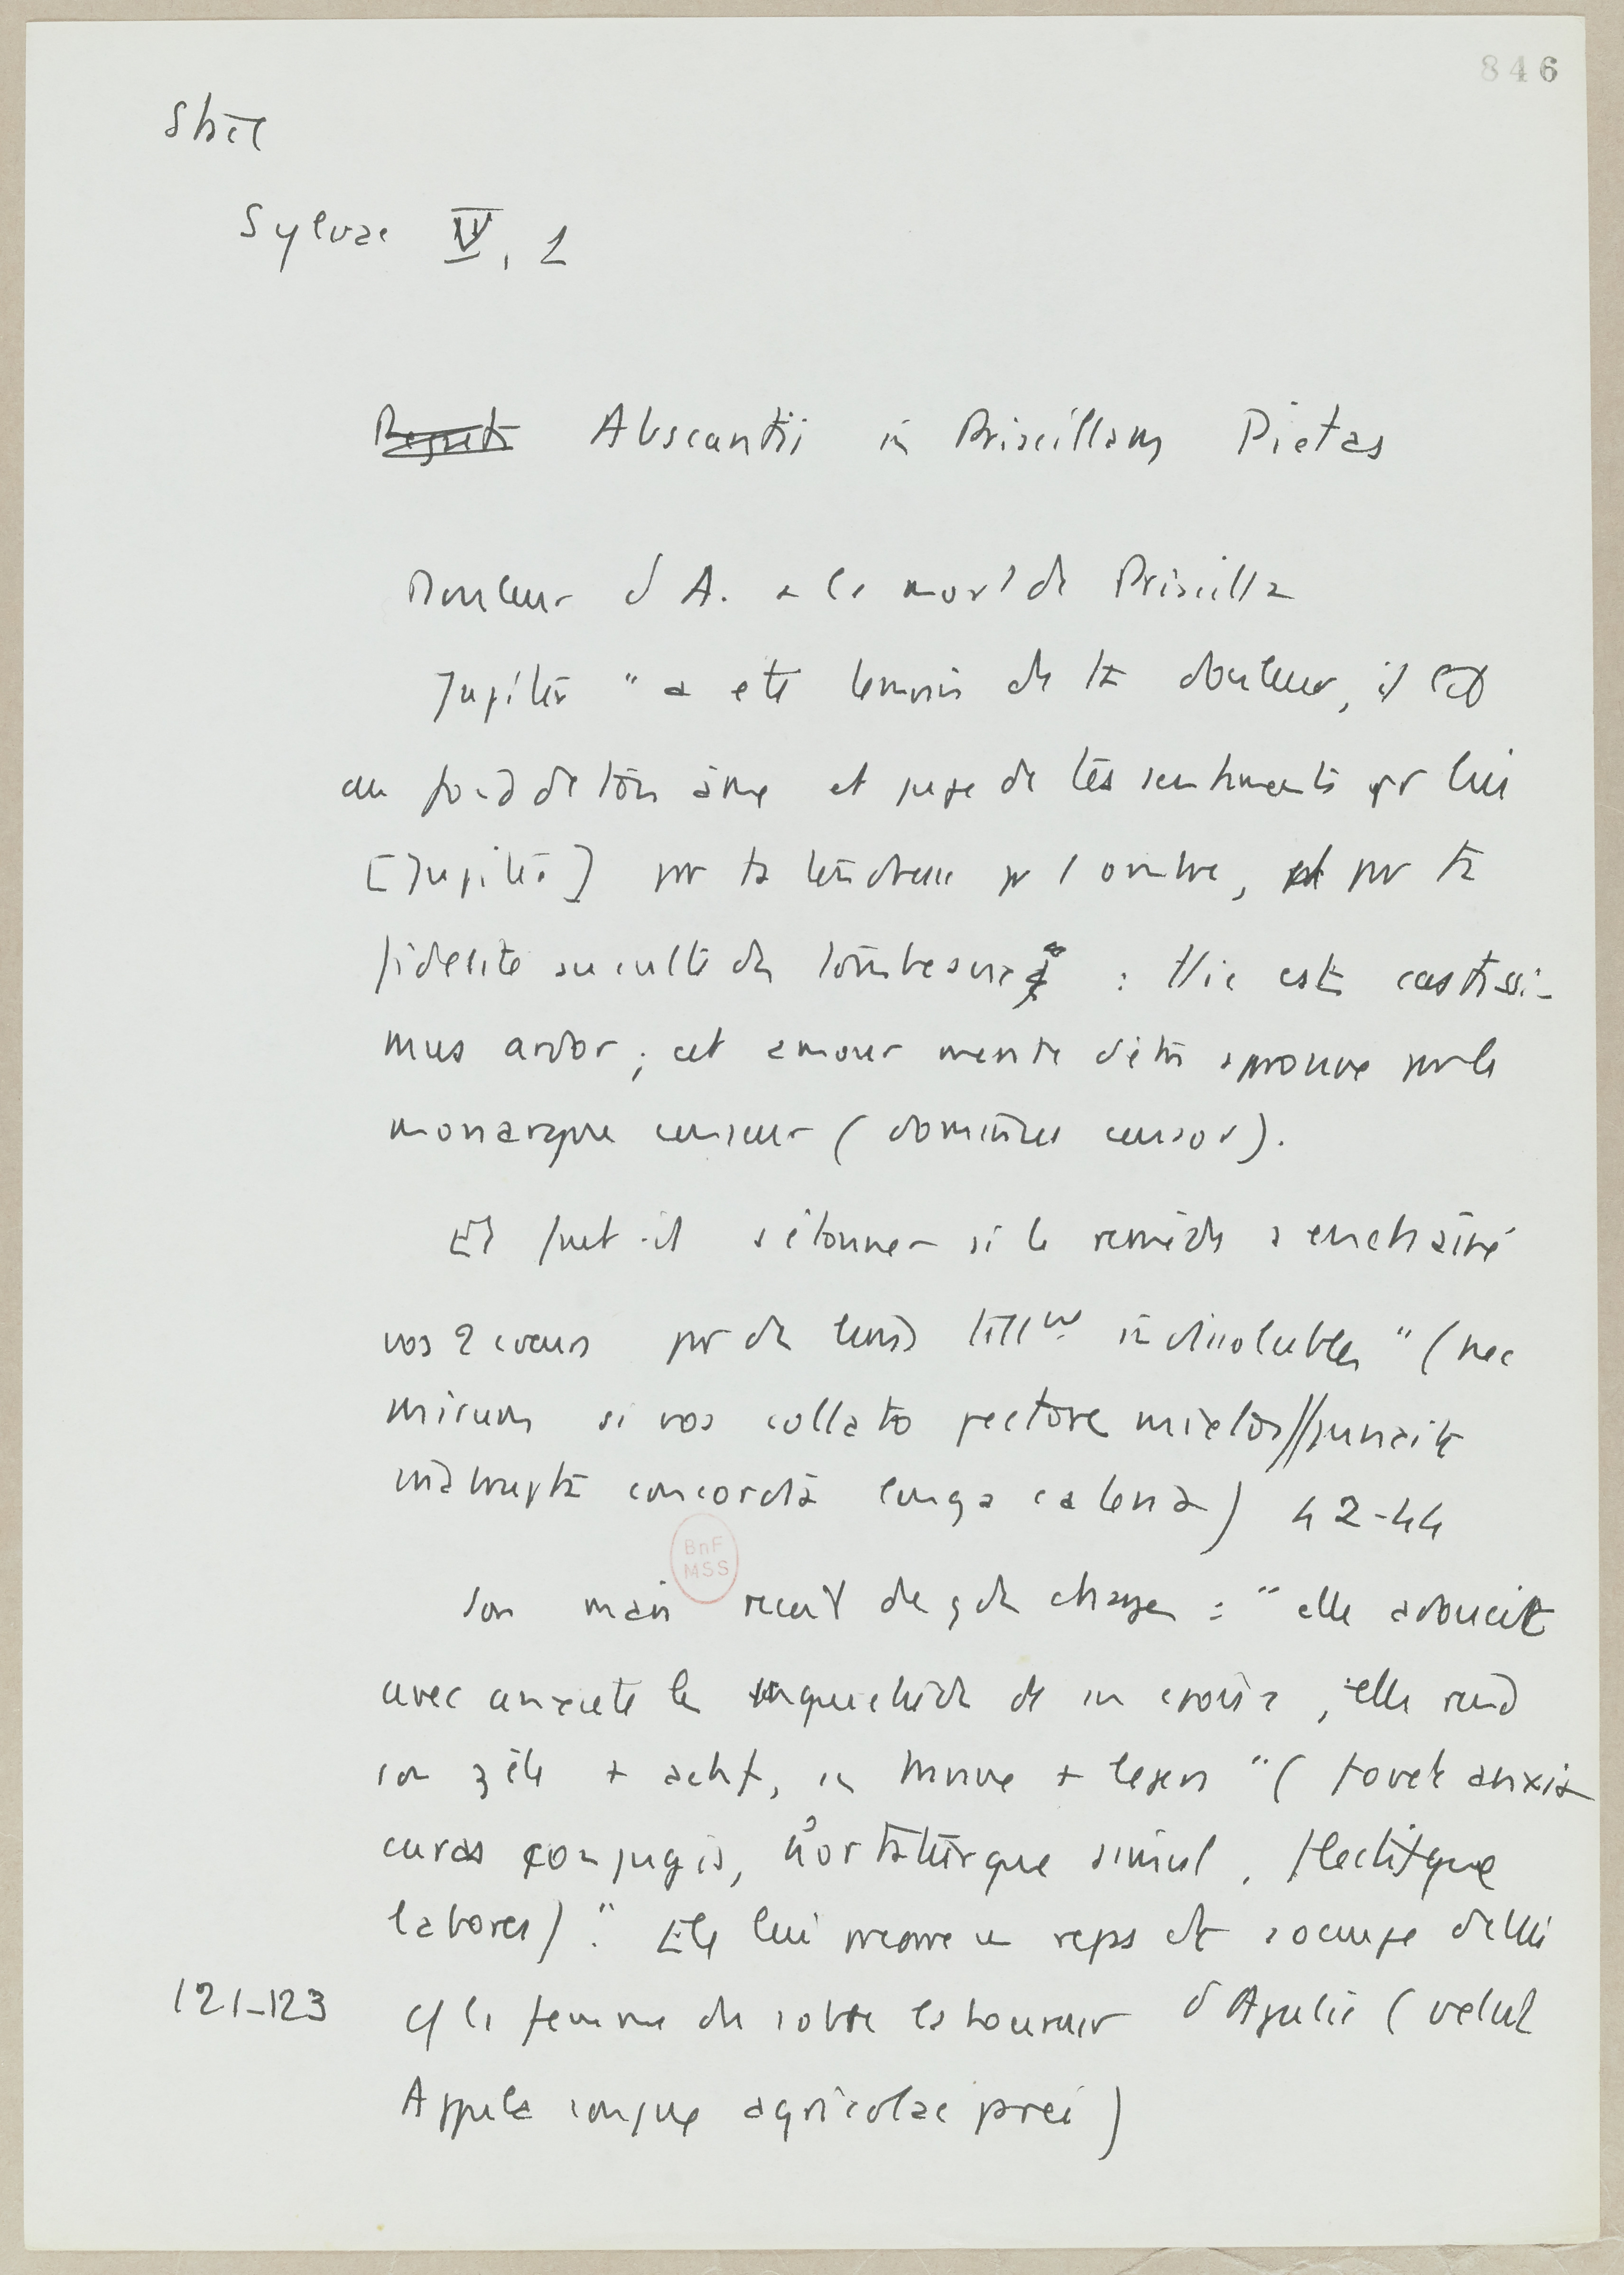 846
Stace
Sylvae V, 1
Regrets Abscantii in Priscillam Pietas
Douleur d A. a la mort de Priscilla
Jupiter " a ete temoin de ta douleur, il lit
au fond de ton âme et juge de tes sentiments pr lui
[Jupiter] par ta tendresse pr l ombre, et par ta
fidelite au culte du tombeau : Hic est castissi-
mus ardor ; cet amour merite d'etre approuve par le
monarque censeur ( dominus censor ).
Et faut-il s étonner si le remède a enchainé
vos 2 coeurs par de liens indissolubles " ( nec
mirum si vos collato pectore mixtos // junxit
inabrupta concordia longa catena ) 42-44
Son mari recoit de gdes charges : " elle adoucit
avec anxiete les inquietudes de son epoux, elle rend
son zèle + actif, sa + leger " ( fovet anxia
curas conjugis, hortaturque simul, flectitque
labores ) ". Elle lui prepare un repas et s occupe d elle
121-123 cf la femme du sobre laboureur d Apulie ( velut
Appula conjux agricolae parci )
BnF
MSS